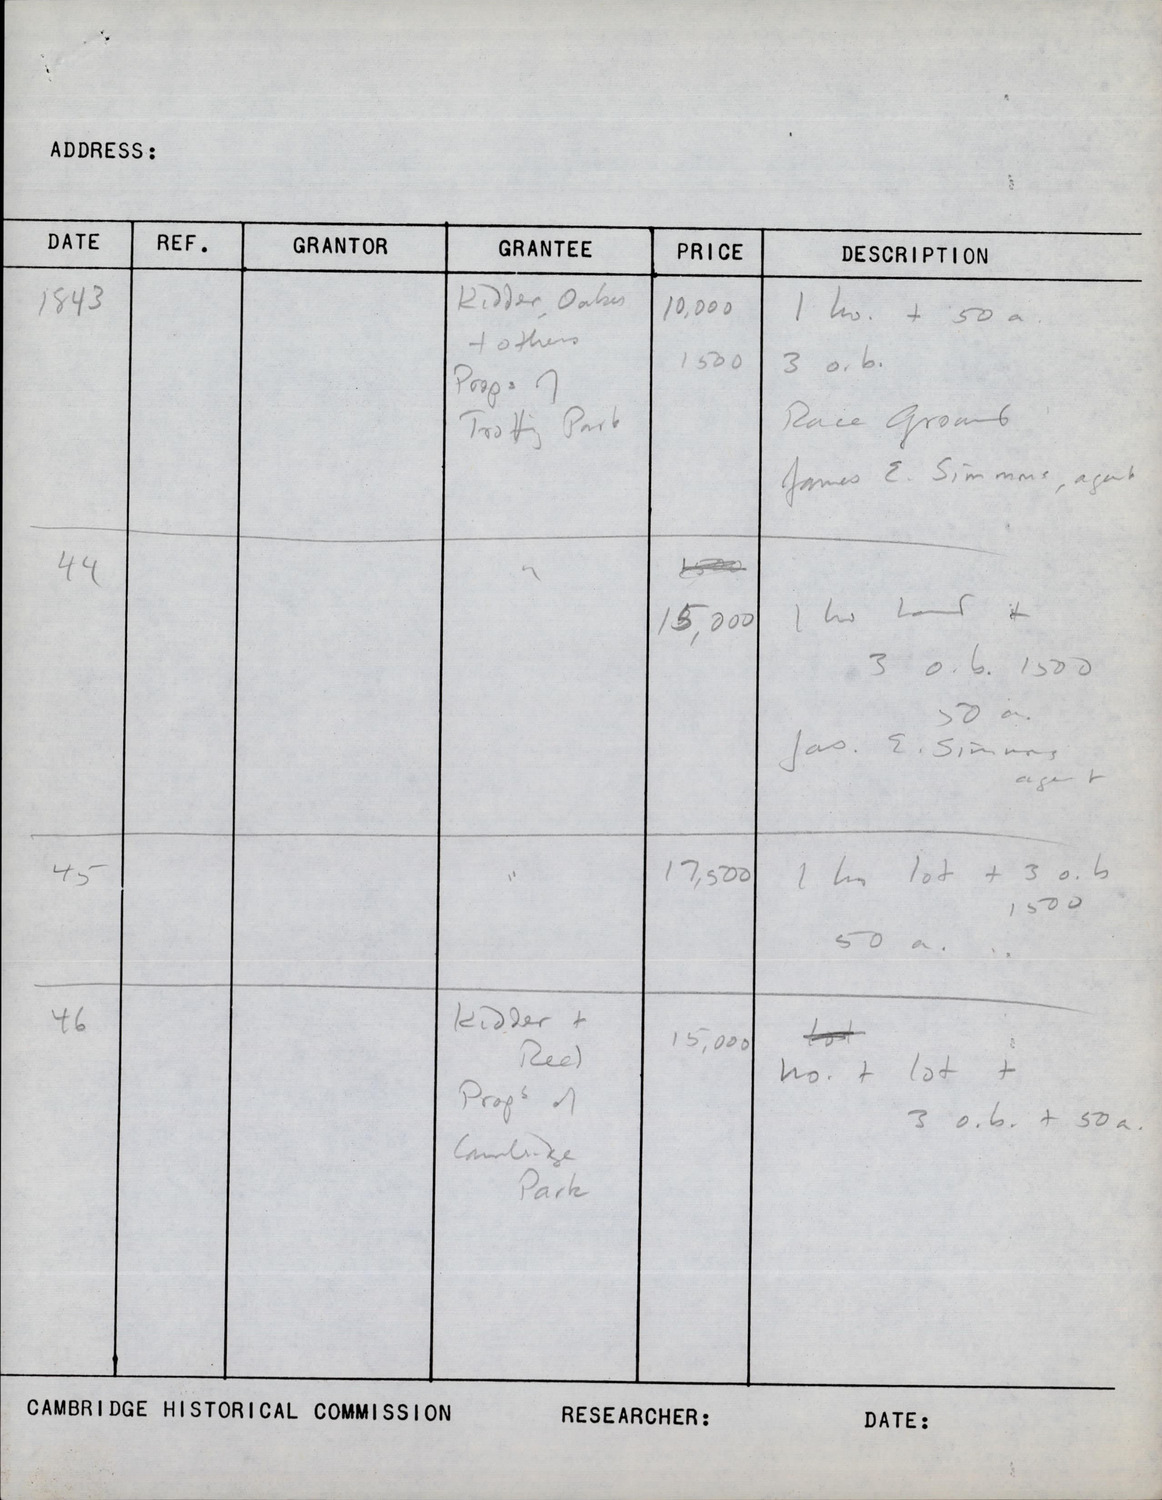 ADDRESS:
DATE REF. GRANTOR GRANTEE PRICE DESCRIPTION
1843 Kidder, Oakes 10,000 1 ho. + 50 a.
+ others 1500 3 o.b.
Props of Race Ground
Trotting Park James E. Simmons, agent
44 " 1500
15,000 1 ho land +
3 o.b. 1500
50 a.
Jas. E. Simmons
agent
45 " 17,500 1 ho lot + 3 o.b
1500
50 a. "
46 Kidder + 15,000 lot
Reed ho. + lot +
Props of 3 o.b. + 50 a.
Cambridge
Park
CAMBRIDGE HISTORICAL COMMISSION RESEARCHER: DATE: